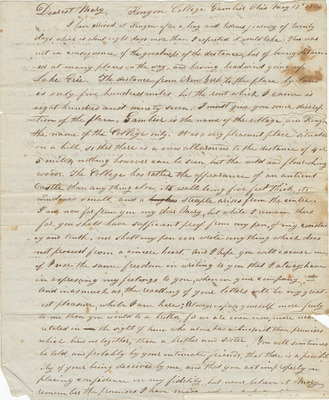 Dearest Mary, Kenyon College Gambier Ohio May 18th
I have arrived at Kenyon after a long and tedious journey of twenty
days which is about eight days more than I expected it would take. This was
not in consequence of the greatness of the distance, but of being detained
at many places on the way, and having headwind going up
Lake Erie. The distance from New York to this place by
is only five hundred miles, but the rout which I came is
eight hundred and ninety seven. I must give you some descrip-
tion of the place, Gambier is the name of the village, and Kenyon
the name of the College only. It is a very pleasant place situated
on a hill, so that there is a view all around to the distance of 4 or
5 miles, nothing however can be seen, but the wild and flourishing
woods. The College has rather the appearance of an ancient
Castle than any thing else, its walls being five feet thick, its
windows small, and a steeple arises from the centre.
I am now far from you my dear Mary, but while I remain thus
far, you shall have sufficient proof from my pen, of my constan-
cy and truth, nor shall my pen ever write any thing which does
not proceed from a sincere heart. And I hope you will excuse me
if I use the same freedom in writing to you that I always have
in expressing my feelings to you, when in your company.
And inasmuch as the reading of your letters will be my great-
est pleasure while I am here, always express yourself more freely
to me than you would to a brother, for we are even now, more near
related in the sight of him who alone has witnessed those promises
which bind us together, than a brother and sister. You will sometimes
be told and probably by your intimate friends, that there is a possibil-
ity of your being deceived by me, and that you act improperly in
placing confidence in my fidelity, but never believe it Mary,
remember the promises I have made